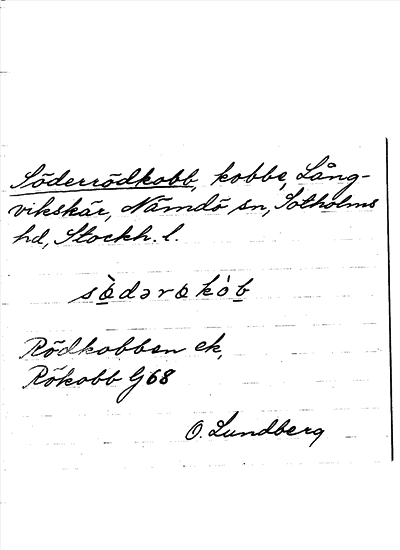 Söderrödkobb, kobbe, Lång-
vikskär, Nämdö sn, Sotholms
hd, Stockh. l.
sœ̀dərœkòb
Rödkobben ek,
Rökobb G68
O. Lundberg